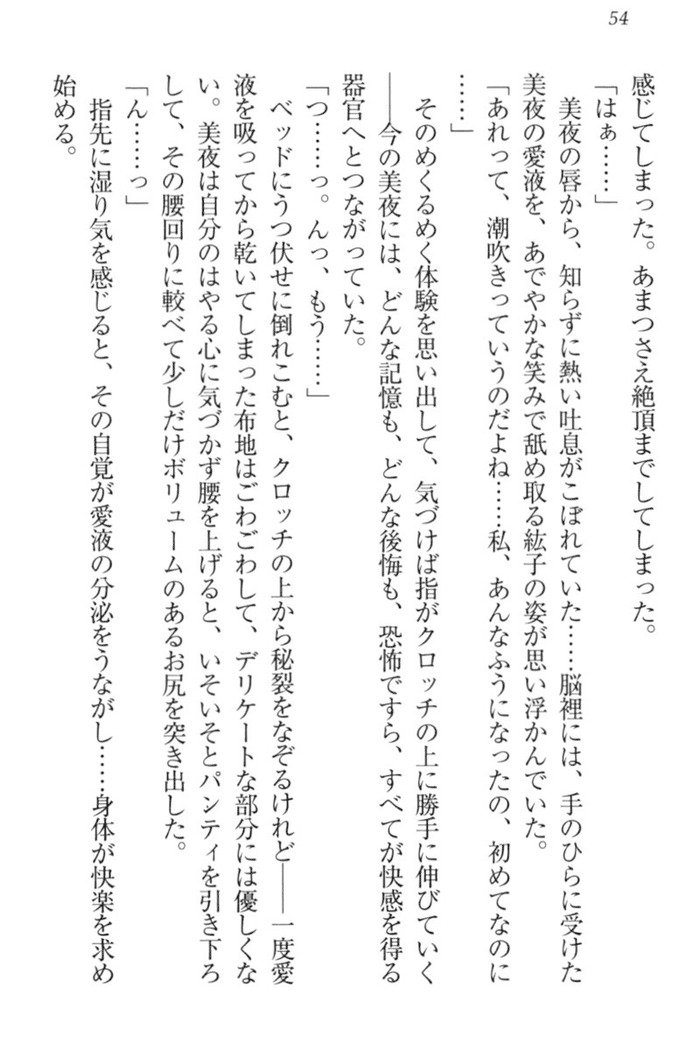 54
感じてしまった。あまつさえ絶頂までしてしまった。
「はぁ……」
美夜の唇から、知らずに熱い吐息がこぼれていた……脳裡には、手のひらに受けた
美夜の愛液を、あでやかな笑みで舐め取る紘子の姿が思い浮かんでいた。
「あれって、潮吹きっていうのだよね……私、あんなふうになったの、初めてなのに
……」
そのめくるめく体験を思い出して、気づけば指がクロッチの上に勝手に伸びていく
――今の美夜には、どんな記憶も、どんな後悔も、恐怖ですら、すべてが快感を得る
器官へとつながっていた。
「つ……っ。んっ、もう……」
ベッドにうつ伏せに倒れこむと、クロッチの上から秘裂をなぞるけれど――一度愛
液を吸ってから乾いてしまった布地はごわごわして、デリケートな部分には優しくな
い。美夜は自分のはやる心に気づかず腰を上げると、いそいそとパンティを引き下ろ
して、その腰回りに較べて少しだけボリュームのあるお尻を突き出した。
「ん……っ」
指先に湿り気を感じると、その自覚が愛液の分泌をうながし……身体が快楽を求め
始める。